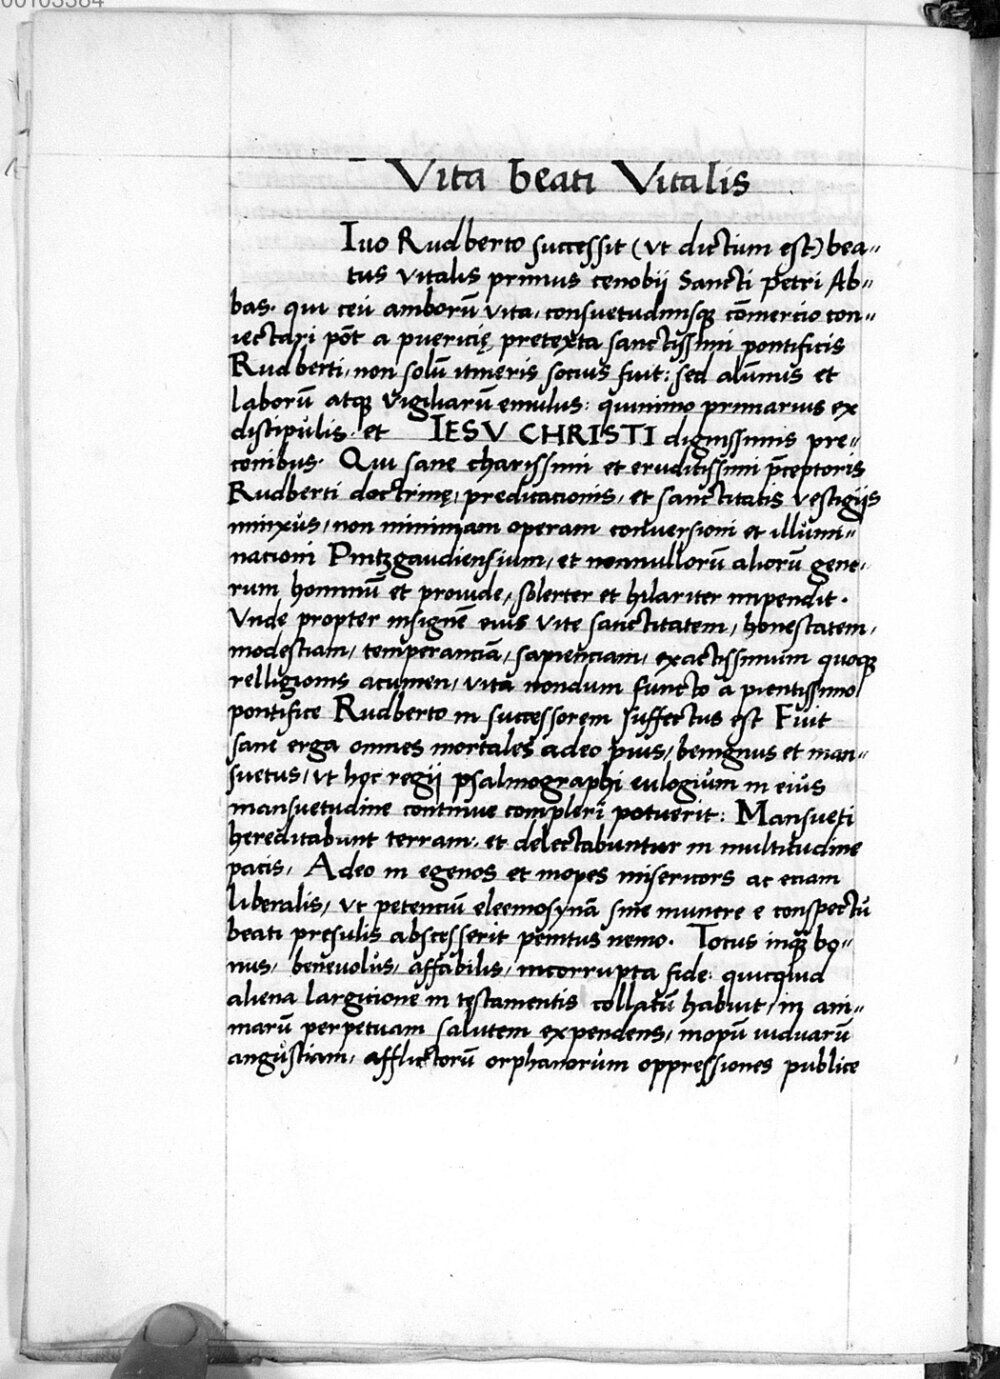 00103384
Vita beati Vitalis
Iuo Rudberto successit (vt dictum est) bea-
tus vitalis primus cenobii Sancti petri Ab-
bas. qui ceu amborū vita, consuetudinisqꝫ cōmercio con-
iectari pōt a puericię pretexta sanctissimi pontificis
Rudberti, non solū itineris socius fuit: sed alūmus et
laborū atqꝫ vigiliarū emulus: quinimo primarius ex
discipulis. et IESV CHRISTI dignissimis pre-
conibus. Qui sane charissimi et eruditissimi p̄ceptoris
Rudberti doctrinę, predicacionis, et sanctitatis vestigiis
innixus, non minimam operam conuersioni et illumi-
nacioni Pintzgaudiensium, et nonnullorū aliorū gene-
rum hominū et prouide, solerter et hilariter impendit.
Vnde propter insignē eius vite sanctitatem, honestatem,
modestiam, temperanciā, sapienciam, exactissimum quoqꝫ
relligionis acumen, vita nondum functo a pientissimo
pontifice Rudberto in successorem suffectus est Fuit
sane erga omnes mortales adeo pius, benignus et man-
suetus, vt hęc regii psalmographi eulogium in eius
mansuetudine continue compleri potuerit: Mansueti
hereditabunt terram. et delectabuntur in multitudine
pacis, Adeo in egenos et inopes misericors ac eciam
liberalis, vt petenciū eleemosynā sine munere e conspectū
beati presulis abscesserit penitus nemo. Totus inqꝫ bo-
nus, beneuolus, affabilis, incorrupta fide: quicquid
aliena largicione in testamentis collatū habuit, in ani-
marū perpetuam salutem expendens, inopū viduarū
angustiam, afflictorū orphanorum oppressiones publice